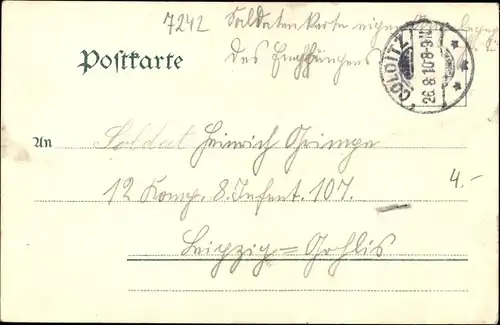 7242 Soldatenkarte eigene
des Empfängers
Postkarte
COLDITZ
26.8.10.8-9N
An
Soldat Heinrich Grimpe
12 Komp. 8. Infent. 107.
4.-
Leipzig=Gohlis